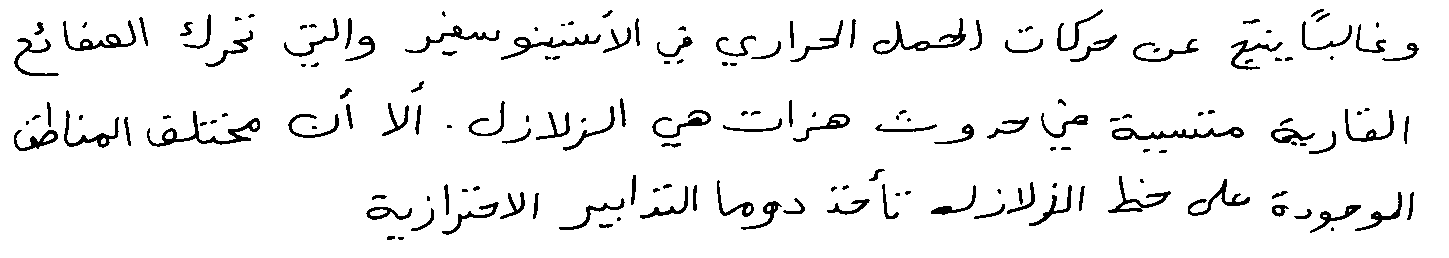 وغالبًا ينتج عن حركات الحمل الحراري في الأستينوسفير والتي تحرك الصفائح
القارية متسببة في حدوث هزات هي الزلازل. ألا أن مختلف المناطق
الموجودة على خط الزلازل تأخذ دوما التدابير الاحترازية